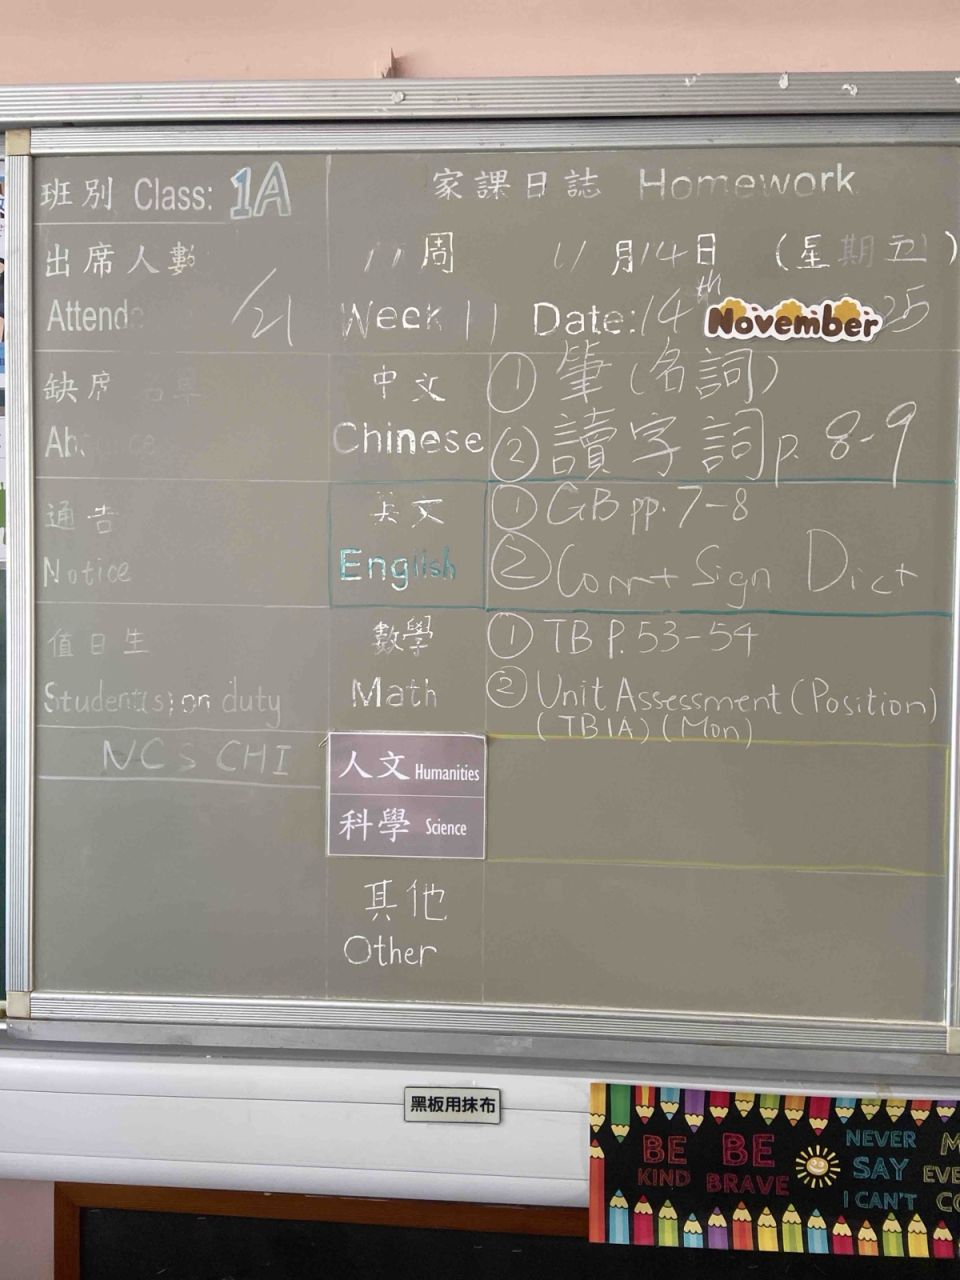 班別 Class: 1A
家課日誌 Homework
出席人數
11周 11月14日 (星期五)
Attend
/21
Week 11 Date: 14th November 25
缺席
中文 ① 筆(名詞)
Chinese ② 讀字詞 p. 8-9
通告
英文 ① GB pp. 7-8
Notice
English ② Corr + Sign Dict
值日生
數學 ① TB P. 53-54
Student(s) on duty
Math ② Unit Assessment (Position)
(TB1A) (Mon)
NCS CHI
人文 Humanities
科學 Science
其他
Other
黑板用抹布
BE KIND
BE BRAVE
NEVER SAY I CAN'T